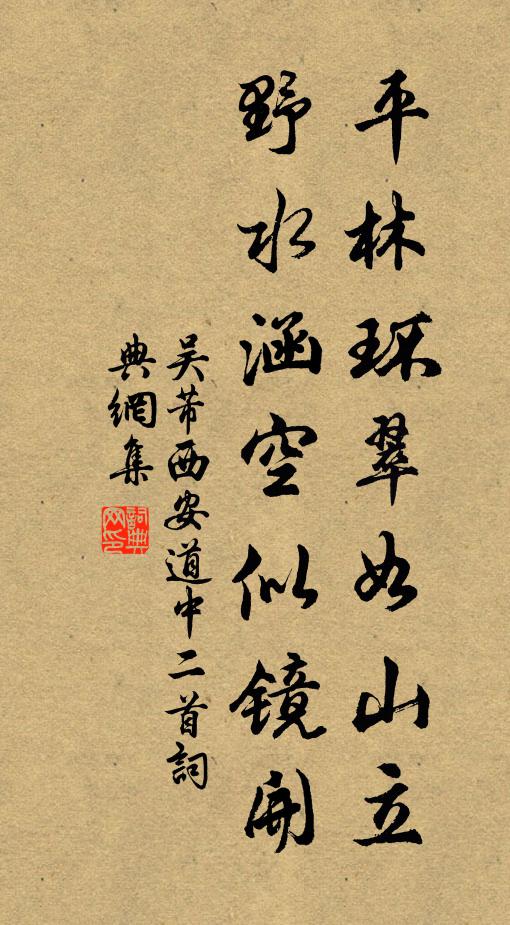 平林环翠如山立
野水涵空似镜开
吴芾西安道中二首詞
典網集
詞典网印